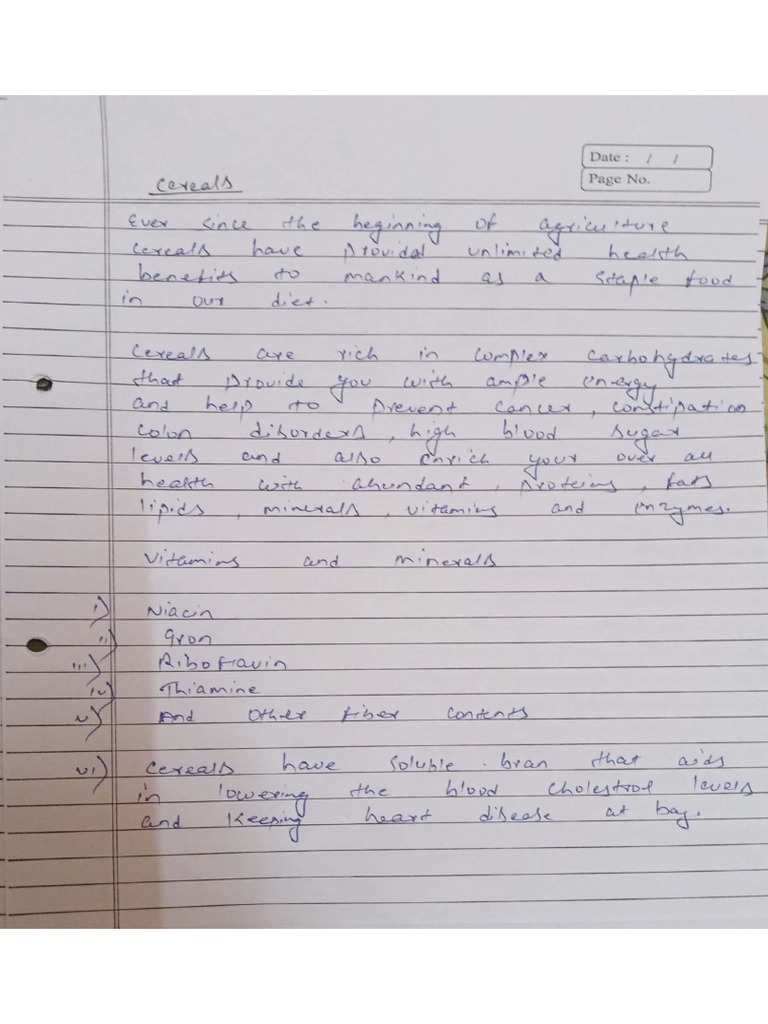 Date : / /
Page No.
Cereals
Ever since the beginning of agriculture
cereals have provided unlimited health
benefits to mankind as a staple food
in our diet.
Cereals are rich in complex carbohydrates
that provide you with ample energy
and help to prevent cancer, constipation
colon disorders, high blood sugar
levels and also enrich your over all
health with abundant, proteins, fats
lipids, minerals, vitamins and enzymes.
Vitamins and minerals
i) Niacin
ii) Iron
iii) Riboflavin
iv) Thiamine
v) And other fiber contents
vi) Cereals have soluble bran that aids
in lowering the blood cholestrol levels
and keeping heart disease at bay.